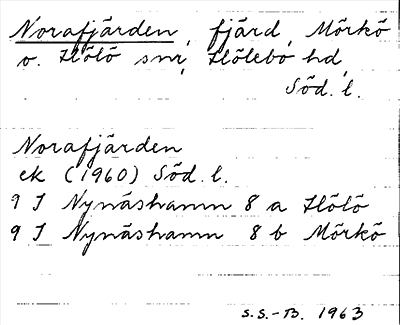 Norafjärden, fjärd, Mörkö
o. Hölö snr, Hölebo hd,
Söd. l.
Norafjärden
ek (1960) Söd. l.
9 I Nynäshamn 8 a Hölö
9 I Nynäshamn 8 b Mörkö
S.S.-B. 1963